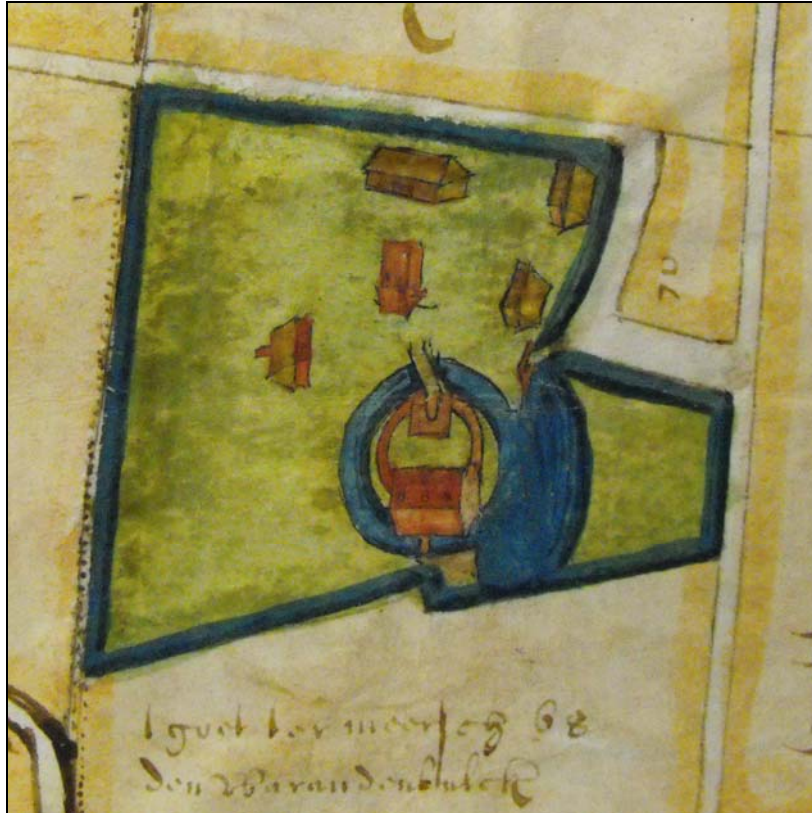 C
70
tgoet ter meersch 68
den Warandenbulck